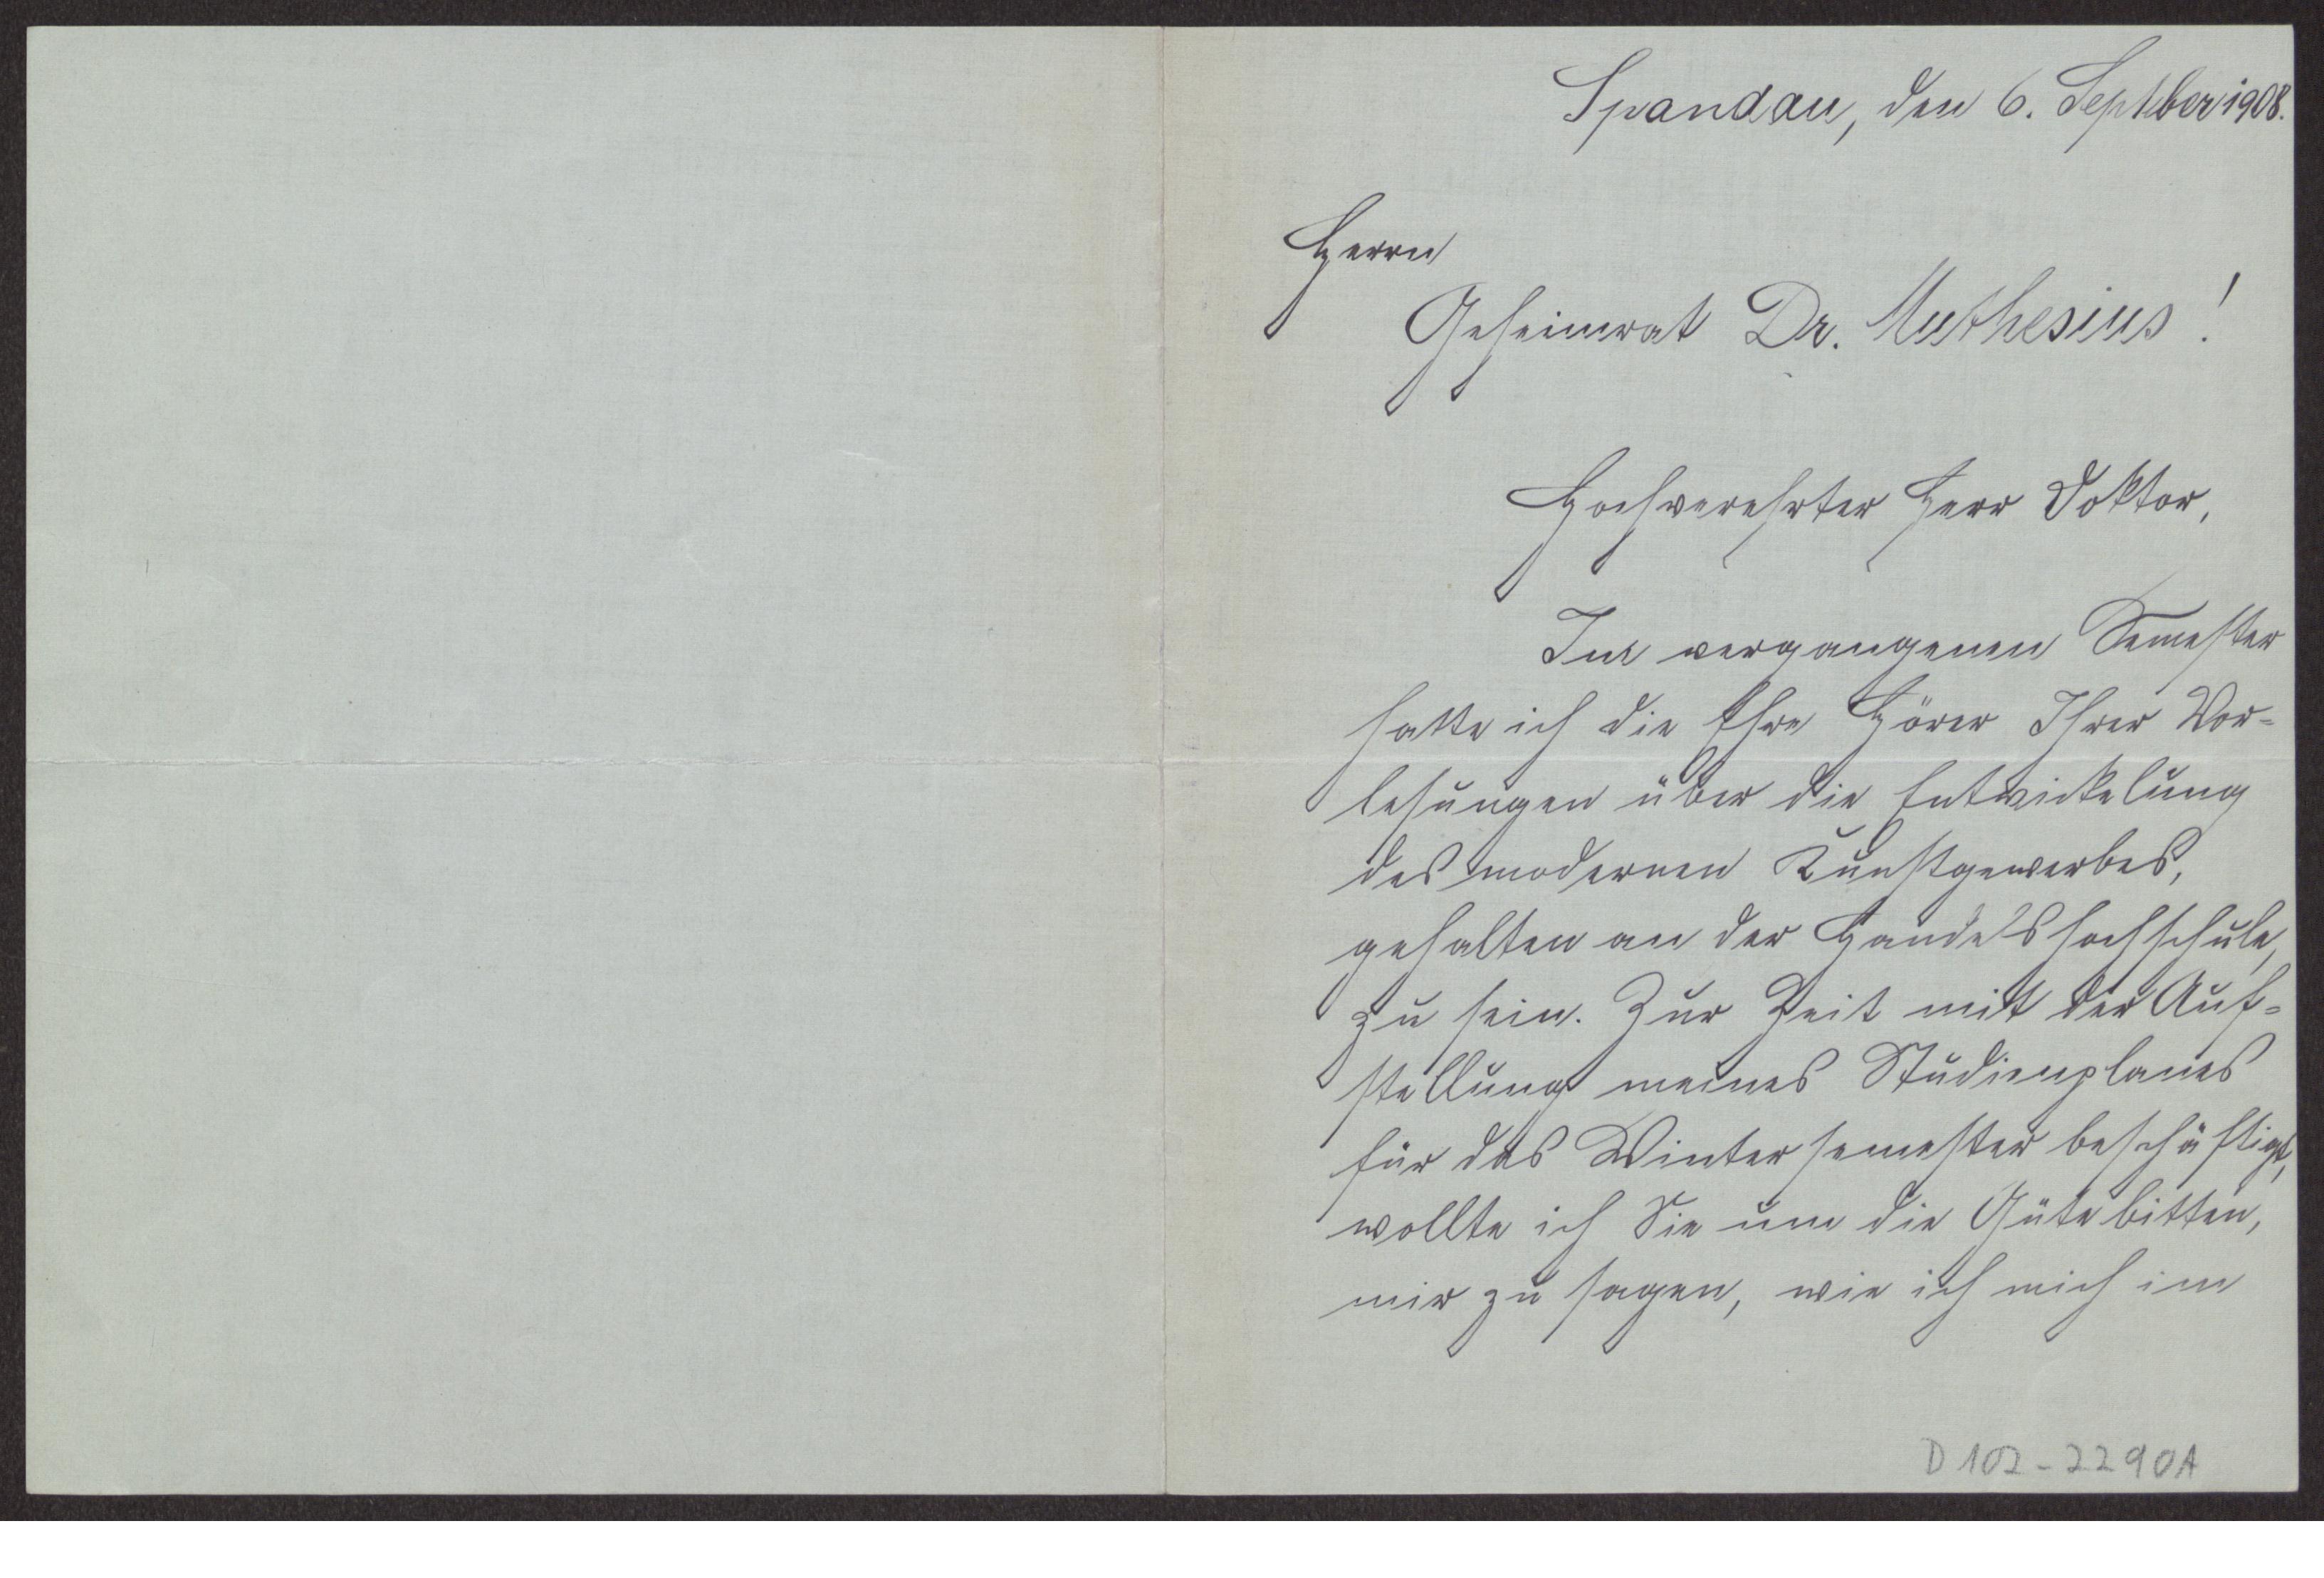 Spandau, den 6. Septber 1908.
Herrn
Geheimrat Dr. Muthesius!
Hochverehrter Herr Doktor,
Im vergangenen Semester
hatte ich die Ehre Hörer Ihrer Vor=
lesungen über die Entwickelung
des modernen Kunstgewerbes,
gehalten an der Handelshochschule,
zu sein. Zur Zeit mit der Auf=
stellung meines Studienplanes
für das Wintersemester beschäftigt,
wollte ich Sie um die Güte bitten,
mir zu sagen, wie ich mich im
D 102-2290A